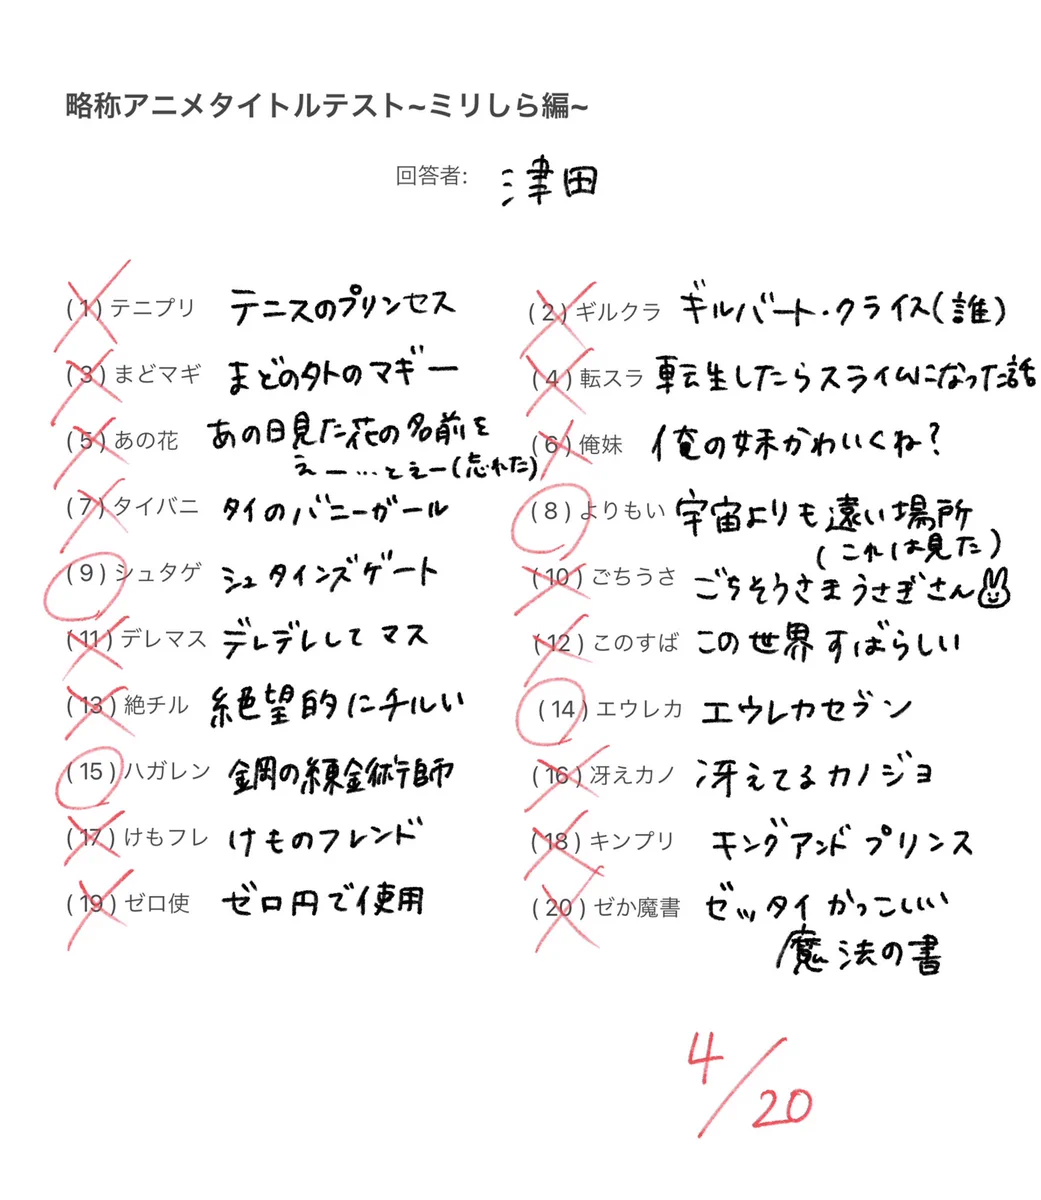 略称アニメタイトルテスト~ミリしら編~
回答者: 津田
(1) テニプリ テニスのプリンセス
(2) ギルクラ ギルバート・クライス(誰)
(3) まどマギ まどの外のマギー
(4) 転スラ 転生したらスライムになった話
(5) あの花 あの日見た花の名前を
えー…とえー(忘れた)
(6) 俺妹 俺の妹かわいくね?
(7) タイバニ タイのバニーガール
(8) よりもい 宇宙よりも遠い場所
(これは見た)
(9) シュタゲ シュタインズゲート
(10) ごちうさ ごちそうさまうさぎさん
(11) デレマス デレデレしてマス
(12) このすば この世界すばらしい
(13) 絶チル 絶望的にチルい
(14) エウレカ エウレカセブン
(15) ハガレン 鋼の錬金術師
(16) 冴えカノ 冴えてるカノジョ
(17) けもフレ けものフレンド
(18) キンプリ キングアンドプリンス
(19) ゼロ使 ゼロ円で使用
(20) ゼか魔書 ゼッタイかっこいい
魔法の書
4/20